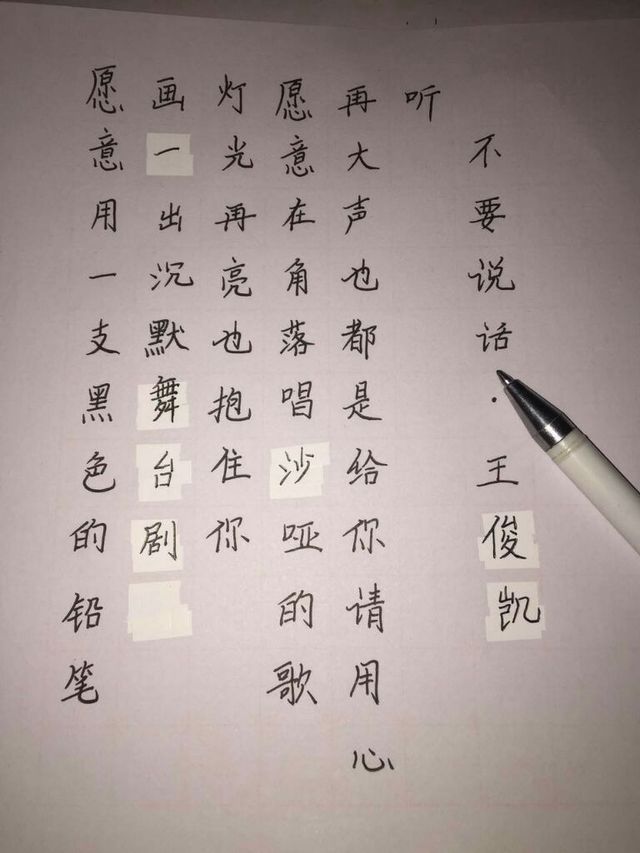 愿意用一支黑色的铅笔
画一出沉默舞台剧
灯光再亮也抱住你
愿意在角落唱沙哑的歌
再大声也都是给你请用心
听
不要说话·王俊凯